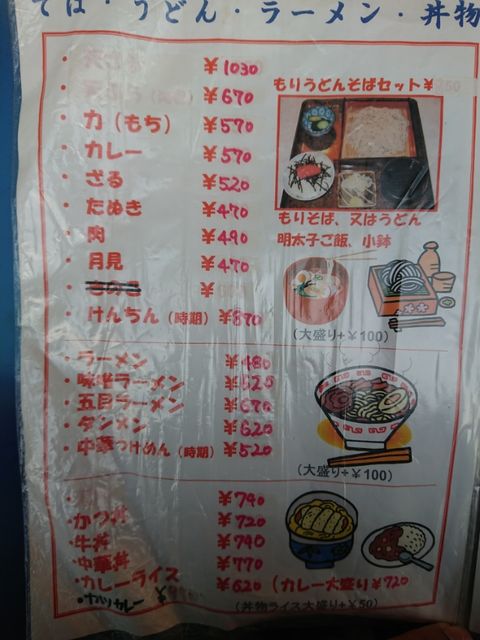 そば・うどん・ラーメン・丼物
・天ざる ￥1030
・天ぷら ￥670
・力（もち） ￥570
・カレー ￥570
・ざる ￥520
・たぬき ￥470
・肉 ￥490
・月見 ￥470
・ ￥
・けんちん（時期） ￥870
もりうどんそばセット￥
もりそば、又はうどん
明太子ご飯、小鉢
（大盛り+￥100）
・ラーメン ￥480
・味噌ラーメン ￥520
・五目ラーメン ￥670
・タンメン ￥620
・中華つけめん（時期） ￥520
（大盛り+￥100）
・ ￥790
・かつ丼 ￥720
・牛丼 ￥790
・中華丼 ￥770
・カレーライス ￥620（カレー大盛り￥720
・カツカレー ￥
（丼物ライス大盛り+￥50）